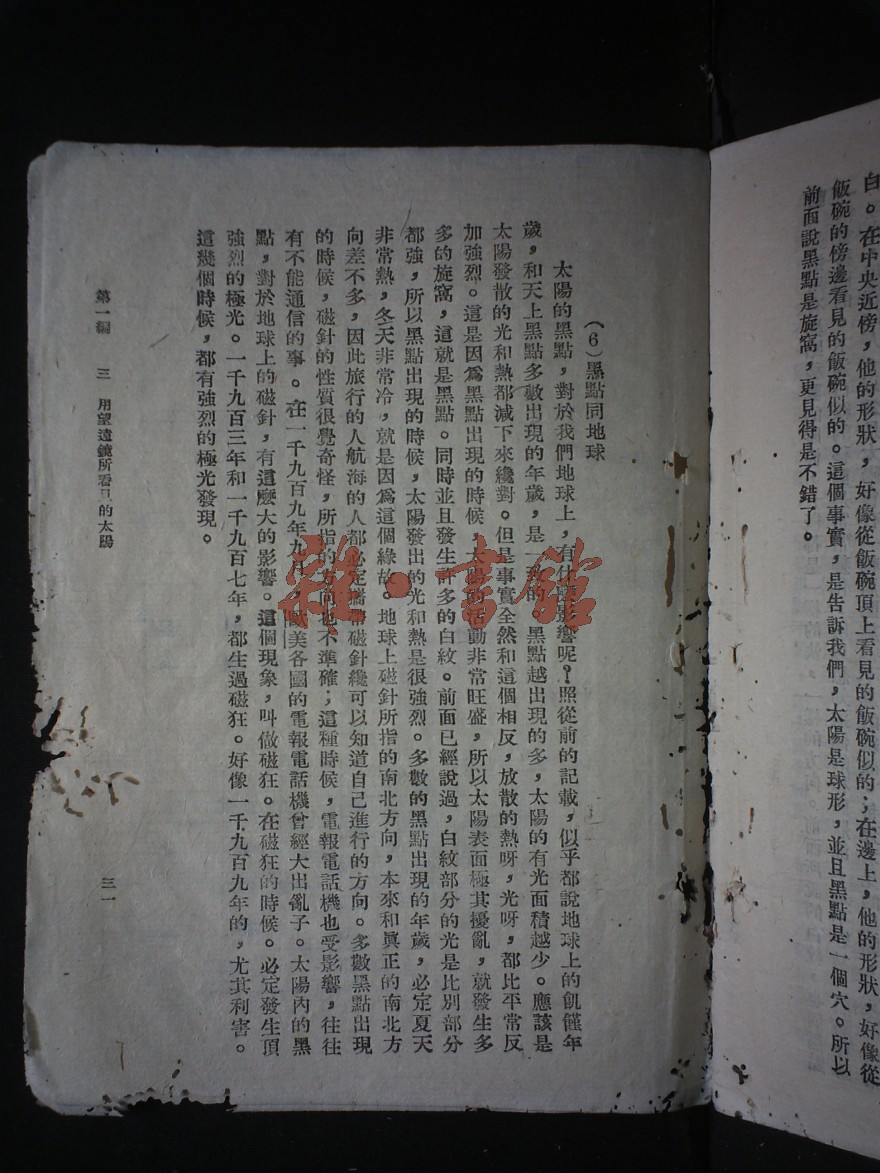 白。在中央近傍，他的形狀，好像從飯碗頂上看見的飯碗似的；在邊上，他的形狀，好像從
飯碗的傍邊看見的飯碗似的。這個事實，是告訴我們，太陽是球形，並且黑點是一個穴。所以
前面說黑點是旋窩，更見得是不錯了。
（6）黑點同地球
太陽的黑點，對於我們地球上，有什麼影響呢？照從前的記載，似乎都說地球上的飢饉年
歲，和天上黑點多數出現的年歲，是一致的。黑點越出現的多，太陽的有光面積越少。應該是
太陽發散的光和熱都減下來纔對。但是事實全然和這個相反，放散的熱呀，光呀，都比平常反
加強烈。這是因爲黑點出現的時候，太陽的活動非常旺盛，所以太陽表面極其擾亂，就發生多
多的旋窩，這就是黑點。同時並且發生許多的白紋。前面已經說過，白紋部分的光是比別部分
都強，所以黑點出現的時候，太陽發出的光和熱是很強烈。多數的黑點出現的年歲，必定夏天
非常熱，冬天非常冷，就是因爲這個緣故。地球上磁針所指的南北方向，本來和眞正的南北方
向差不多，因此旅行的人航海的人都必定攜帶磁針纔可以知道自己進行的方向。多數黑點出現
的時候，磁針的性質很覺奇怪，所指的方向也不準確；這種時候，電報電話機也受影響，往往
有不能通信的事。在一千九百九年九月，歐美各國的電報電話機曾經大出亂子。太陽內的黑
點，對於地球上的磁針，有這麼大的影響。這個現象，叫做磁狂。在磁狂的時候。必定發生頂
強烈的極光。一千九百三年和一千九百七年，都生過磁狂。好像一千九百九年的，尤其利害。
這幾個時候，都有強烈的極光發現。
第一編　三　用望遠鏡所看見的太陽
三一
雜·書館